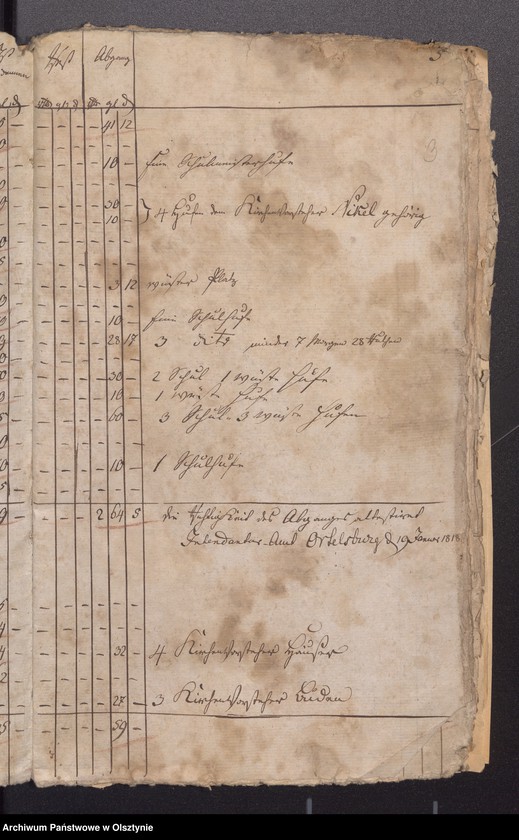 Rest Abgang
gl
91 12
10 — Schulmeisterhufe
30
10 } 4 Hufen dem Kirchenvorsteher Nikel gehörig
3 12 wüster Platz
10 — Schulhufe
28 17 3 dito minder 7 Morgen 28
30 — 2 Schul 1 wüste Hufe
10 — 1 wüste Hufe
60 — 3 Schul- 3 wüste Hufen
10 — 1 Schulhufe
2 64 5 die Richtigkeit des Abganges attestiret
Intendantur-Amt Ortelsburg d 19 Januar 181
32 — 4 Kirchenvorsteher Häuser
27 — 3 Kirchenvorsteher Buden
59 —
3
Archiwum Państwowe w Olsztynie